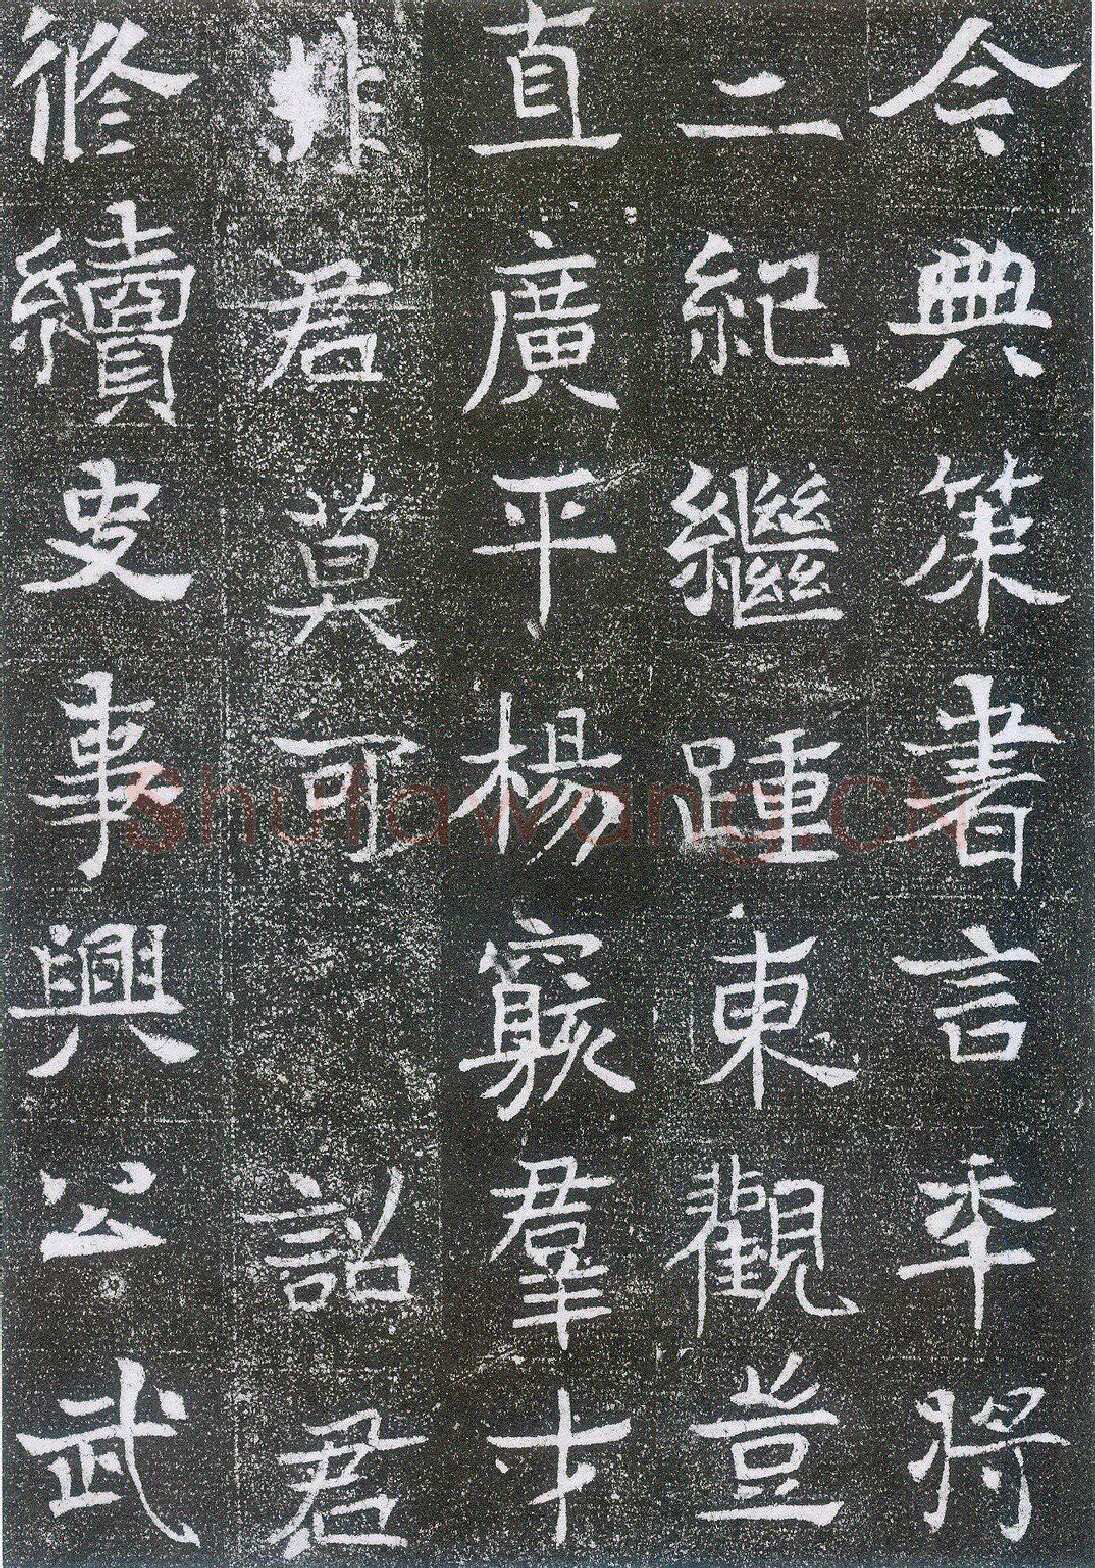 令典策書言年將
二紀繼踵東觀豈
直廣平楊窮羣才
非君莫可 詔君
修續史事興公武
shufawang.CN